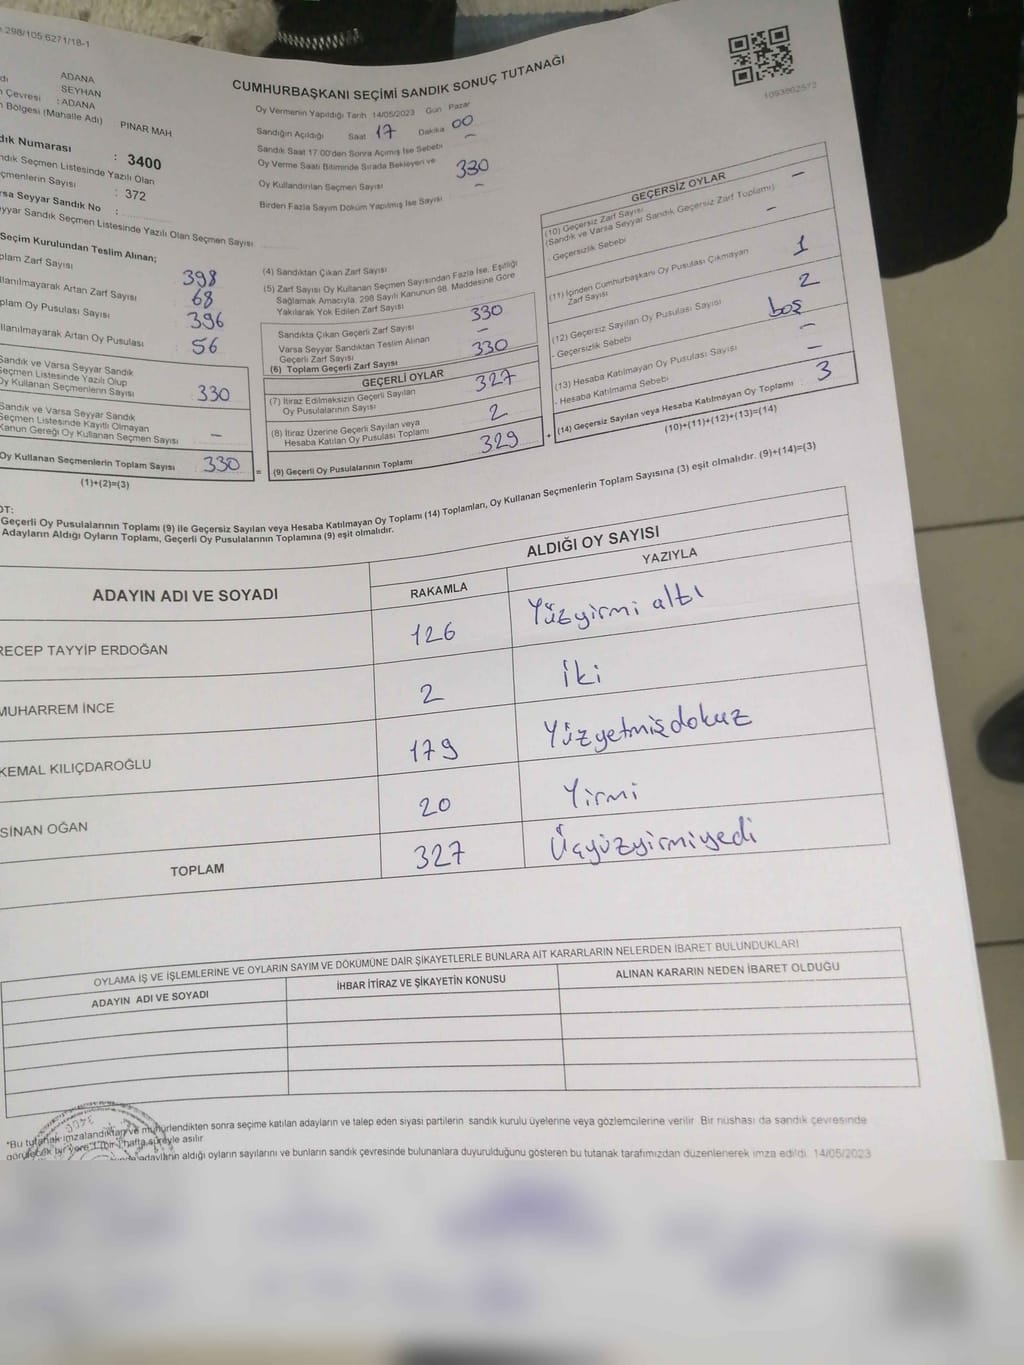 298/105.6271/18-1
CUMHURBAŞKANI SEÇİMİ SANDIK SONUÇ TUTANAĞI
1093862572
ADANA
SEYHAN
Çevresi : ADANA
Bölgesi (Mahalle Adı) PINAR MAH
Numarası : 3400
Seçmen Listesinde Yazılı Olan
Sayısı : 372
Seyyar Sandık No :
Seyyar Sandık Seçmen Listesinde Yazılı Olan Seçmen Sayısı
Oy Vermenin Yapıldığı Tarih 14/05/2023 Gün Pazar
Sandığın Açıldığı Saat 17 Dakika 00
Sandık Saat 17:00'den Sonra Açılmış İse Sebebi -
Oy Verme Saati Bitiminde Sırada Bekleyen ve
Oy Kullandırılan Seçmen Sayısı 330
Birden Fazla Sayım Döküm Yapılmış İse Sayısı -
Seçim Kurulundan Teslim Alınan;
Zarf Sayısı 398
Artan Zarf Sayısı 68
Oy Pusulası Sayısı 396
Artan Oy Pusulası 56
Sandık ve Varsa Seyyar Sandık
Seçmen Listesinde Yazılı Olup
Oy Kullanan Seçmenlerin Sayısı 330
Sandık ve Varsa Seyyar Sandık
Seçmen Listesinde Kayıtlı Olmayan
Kanun Gereği Oy Kullanan Seçmen Sayısı -
Oy Kullanan Seçmenlerin Toplam Sayısı 330
(1)+(2)=(3)
(4) Sandıktan Çıkan Zarf Sayısı
(5) Zarf Sayısı Oy Kullanan Seçmen Sayısından Fazla İse, Eşitliği
Sağlamak Amacıyla, 298 Sayılı Kanunun 98. Maddesine Göre
Yakılarak Yok Edilen Zarf Sayısı
Sandıkta Çıkan Geçerli Zarf Sayısı 330
Varsa Seyyar Sandıktan Teslim Alınan
Geçerli Zarf Sayısı -
(6) Toplam Geçerli Zarf Sayısı 330
GEÇERLİ OYLAR
(7) İtiraz Edilmeksizin Geçerli Sayılan
Oy Pusulalarının Sayısı 327
(8) İtiraz Üzerine Geçerli Sayılan ve
Hesaba Katılan Oy Pusulası Toplamı 2
= (9) Geçerli Oy Pusulalarının Toplamı 329
GEÇERSİZ OYLAR
(10) Geçersiz Zarf Sayısı
(Sandık ve Varsa Seyyar Sandık Geçersiz Zarf Toplamı) -
- Geçersizlik Sebebi -
(11) İçinden Cumhurbaşkanı Oy Pusulası Çıkmayan
Zarf Sayısı 1
(12) Geçersiz Sayılan Oy Pusulası Sayısı 2
- Geçersizlik Sebebi boş
(13) Hesaba Katılmayan Oy Pusulası Sayısı -
- Hesaba Katılmama Sebebi -
+ (14) Geçersiz Sayılan veya Hesaba Katılmayan Oy Toplamı : 3
(10)+(11)+(12)+(13)=(14)
Geçerli Oy Pusulalarının Toplamı (9) ile Geçersiz Sayılan veya Hesaba Katılmayan Oy Toplamı (14) Toplamları, Oy Kullanan Seçmenlerin Toplam Sayısına (3) eşit olmalıdır. (9)+(14)=(3)
Adayların Aldığı Oyların Toplamı, Geçerli Oy Pusulalarının Toplamına (9) eşit olmalıdır.
ADAYIN ADI VE SOYADI
ALDIĞI OY SAYISI
RAKAMLA YAZIYLA
RECEP TAYYİP ERDOĞAN 126 Yüzyirmi altı
MUHARREM İNCE 2 İki
KEMAL KILIÇDAROĞLU 179 Yüzyetmişdokuz
SİNAN OĞAN 20 Yirmi
TOPLAM 327 Üçyüzyirmiyedi
OYLAMA İŞ VE İŞLEMLERİNE VE OYLARIN SAYIM VE DÖKÜMÜNE DAİR ŞİKAYETLERLE BUNLARA AİT KARARLARIN NELERDEN İBARET BULUNDUKLARI
ADAYIN ADI VE SOYADI İHBAR İTİRAZ VE ŞİKAYETİN KONUSU ALINAN KARARIN NEDEN İBARET OLDUĞU
"Bu tutanak imzalandıktan ve mühürlendikten sonra seçime katılan adayların ve talep eden siyasi partilerin sandık kurulu üyelerine veya gözlemcilerine verilir. Bir nüshası da sandık çevresinde
görülecek bir yere 1 (bir) hafta süreyle asılır.
adayların aldığı oyların sayılarını ve bunların sandık çevresinde bulunanlara duyurulduğunu gösteren bu tutanak tarafımızdan düzenlenerek imza edildi. 14/05/2023